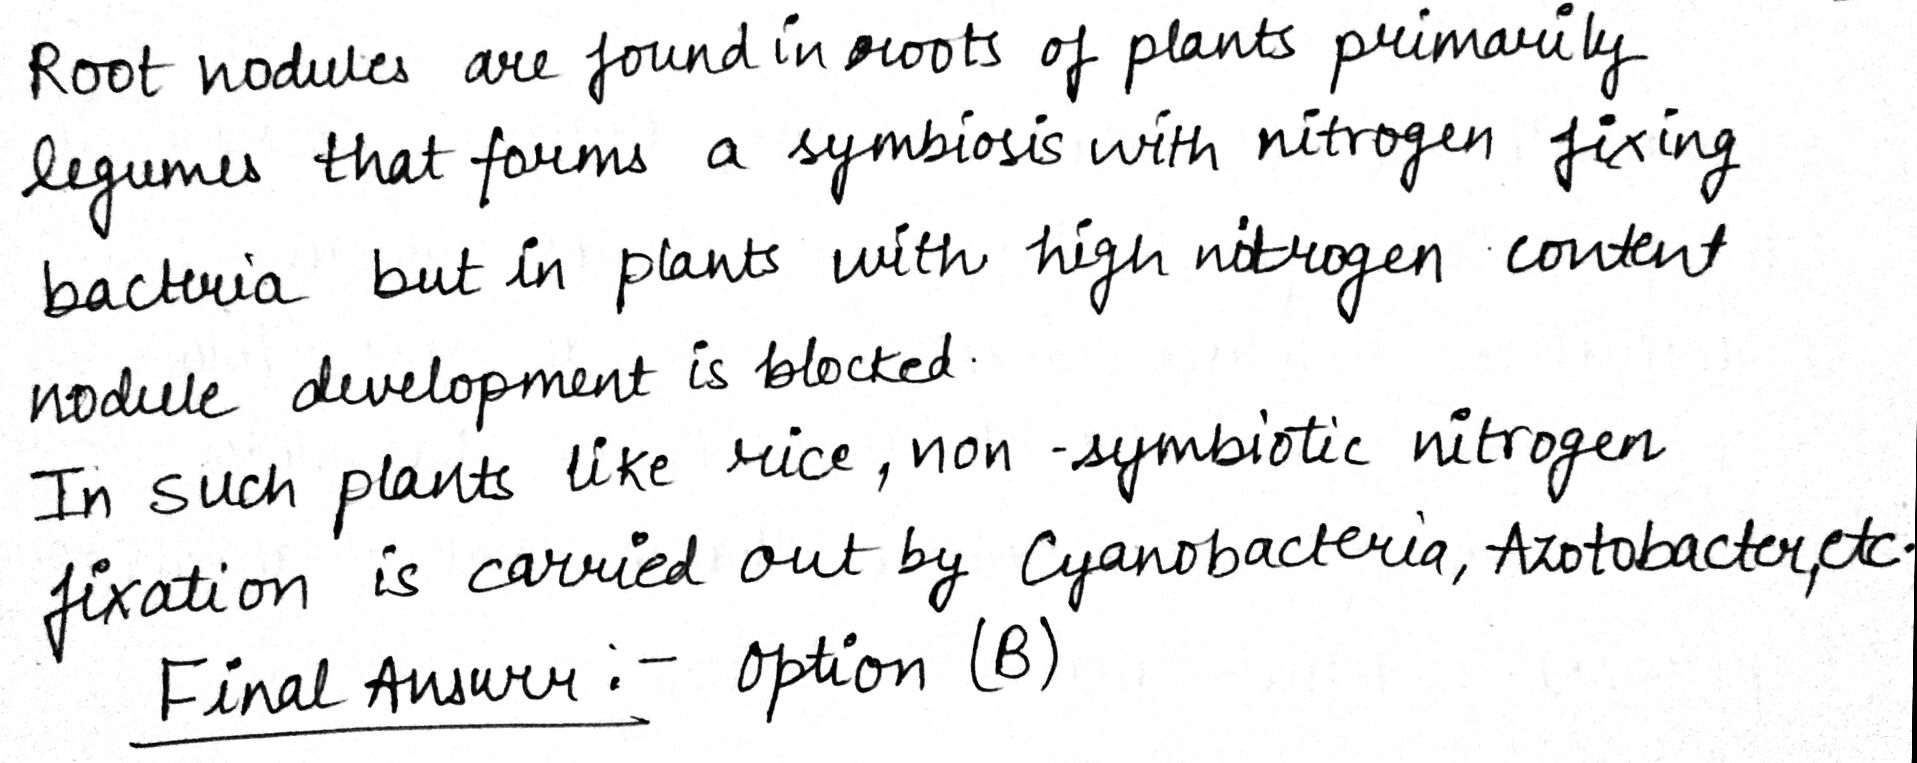 Root nodules are found in roots of plants primarily
legumes that forms a symbiosis with nitrogen fixing
bacteria but in plants with high nitrogen content
nodule development is blocked.
In such plants like rice, non-symbiotic nitrogen
fixation is carried out by Cyanobacteria, Azotobacter, etc.
Final Answer :- option (B)